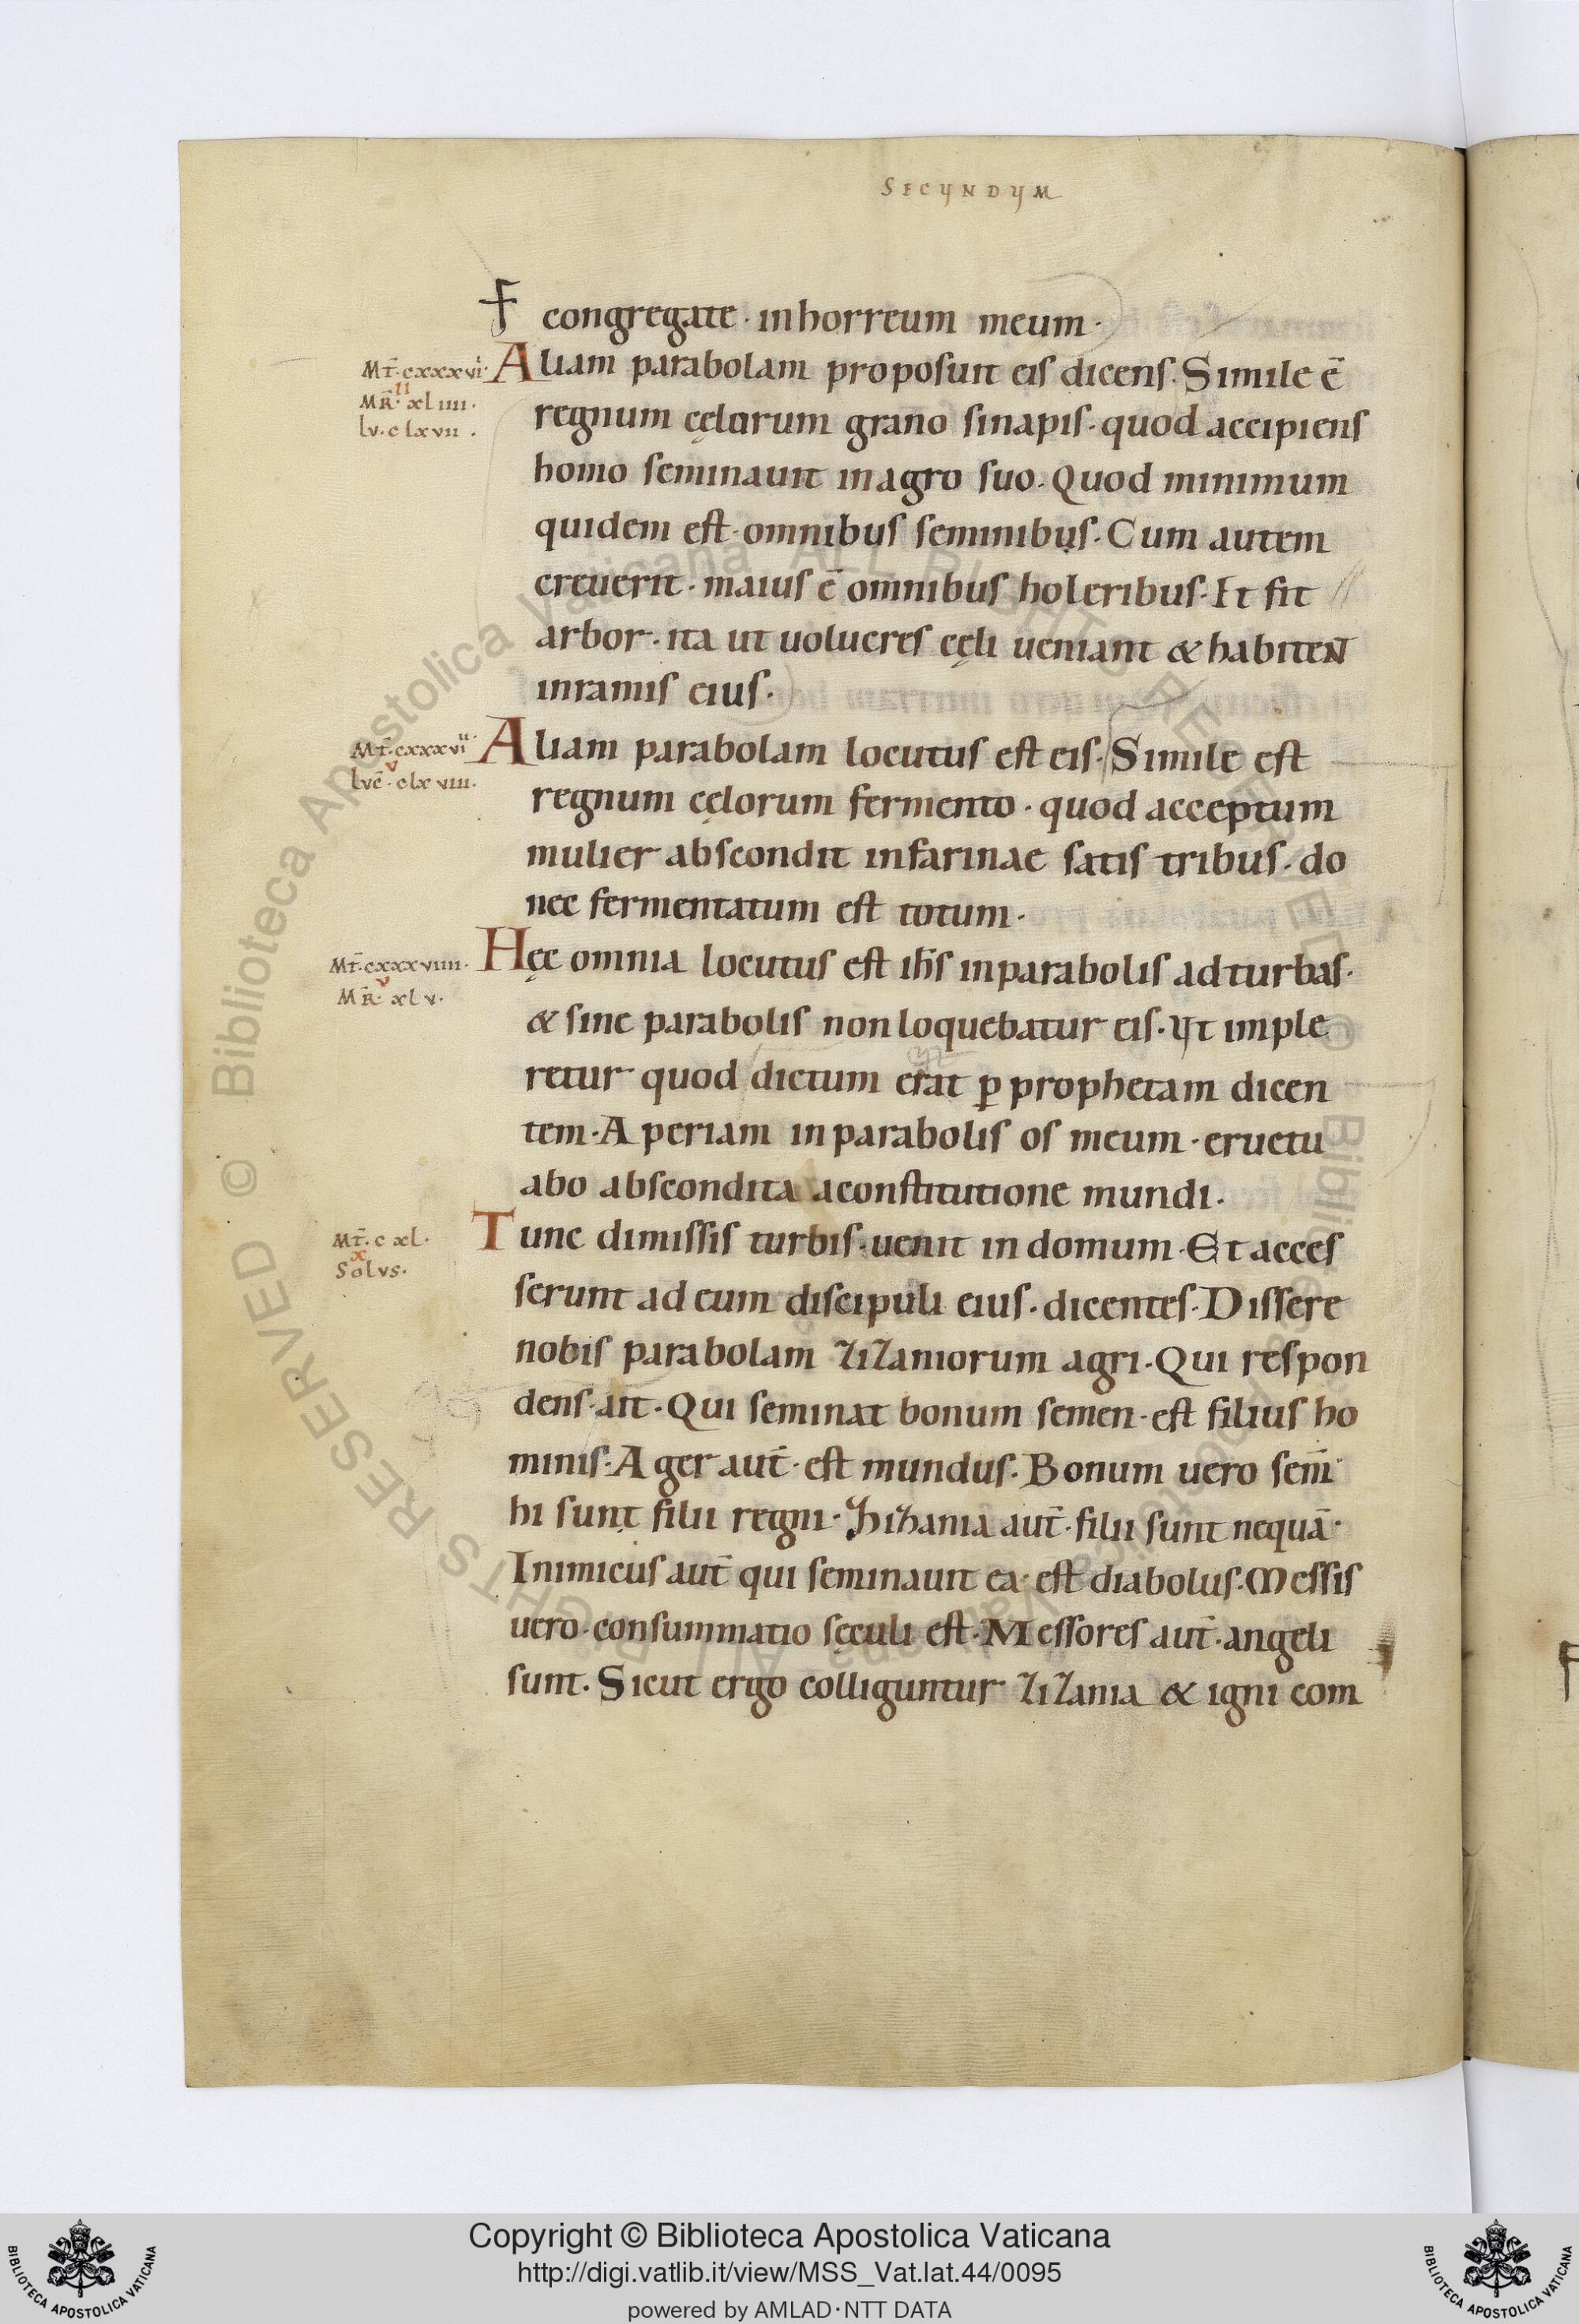 SECUNDUM
congregate · in horreum meum ·
Mt̄ · cxxxvi · Aliam parabolam proposuit eis dicens · Simile ē
ii
MR̄ · xliiii ·
lv · clxvii ·
regnum cęlorum grano sinapis · quod accipiens
homo seminauit in agro suo · Quod minimum
quidem est · omnibus seminibus · Cum autem
creuerit · maius ē omnibus holeribus · Et fit
arbor · ita ut uolucres cęli ueniant & habiteN̄
in ramis eius ·
Mt̄ · cxxxvii · Aliam parabolam locutus est eis · Simile est
v
lvc̄ · clxviii ·
regnum cęlorum fermento · quod acceptum
mulier abscondit in farinae satis tribus · do
nec fermentatum est totum ·
Mt̄ · cxxxviiii · Hęc omnia locutus est ih̄s in parabolis ad turbas ·
v
MR̄ · xlv ·
& sine parabolis non loquebatur eis · Ut imple
retur quod dictum erat ꝑ prophetam dicen
tem · Aperiam in parabolis os meum · eructu
abo abscondita a constitutione mundi ·
Mt̄ · cxl · Tunc dimissis turbis · uenit in domum · Et acces
x
Solvs ·
serunt ad eum discipuli eius · dicentes · Dissere
nobis parabolam zizaniorum agri · Qui respon
dens · ait · Qui seminat bonum semen · est filius ho
minis · Ager aut̄ · est mundus · Bonum uero sem̄
hi sunt filii regni · Zizania aut̄ · filii sunt nequā ·
Inimicus aut̄ qui seminauit ea · est diabolus · Messis
uero · consummatio sęculi est · Messores aut̄ · angeli
sunt · Sicut ergo colliguntur zizania & igni com
© Biblioteca Apostolica Vaticana ALL RIGHTS RESERVED
© Biblioteca Apostolica Vaticana ALL RIGHTS RESERVED
BIBLIOTECA APOSTOLICA VATICANA
Copyright © Biblioteca Apostolica Vaticana
http://digi.vatlib.it/view/MSS_Vat.lat.44/0095
powered by AMLAD · NTT DATA
BIBLIOTECA APOSTOLICA VATICANA